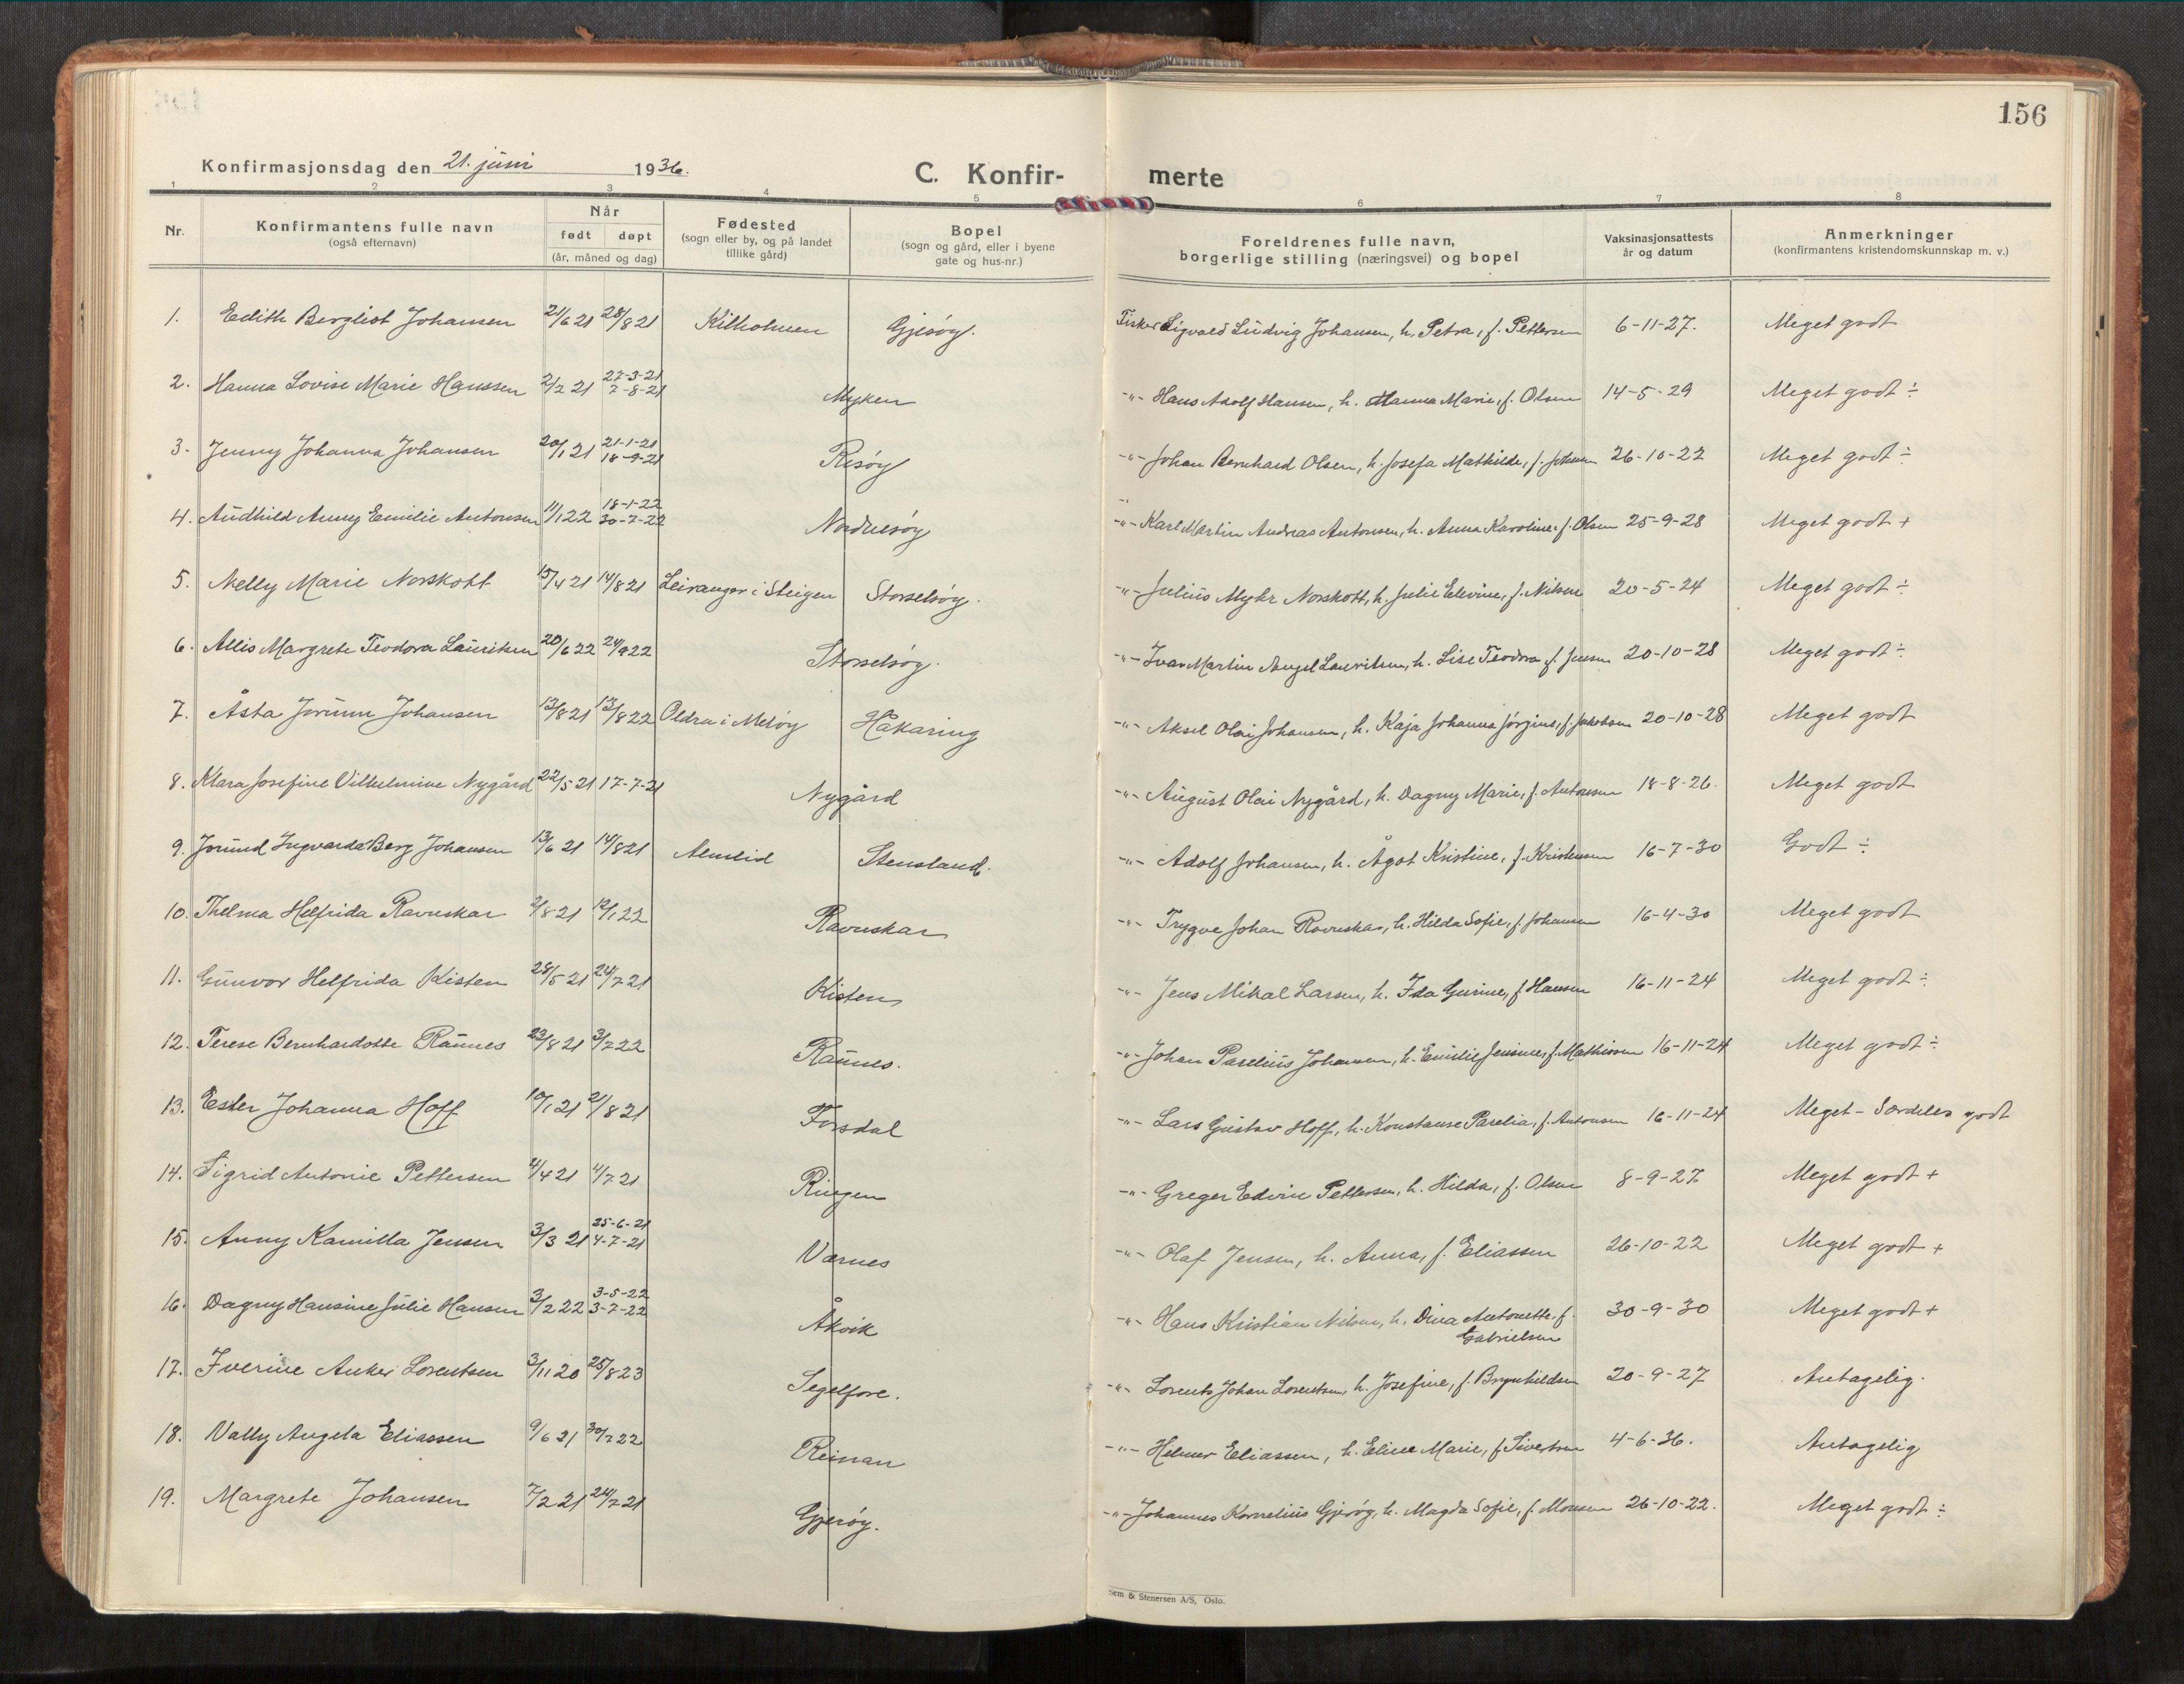 156
Konfirmasjonsdag den 21. juni 1936.
C. Konfir- merte
1 2 3 4 5 6 7 8
Nr.
Konfirmantens fulle navn
(også efternavn)
Når
født døpt
(år, måned og dag)
Fødested
(sogn eller by, og på landet
tillike gård)
Bopel
(sogn og gård, eller i byene
gate og hus-nr.)
Foreldrenes fulle navn,
borgerlige stilling (næringsvei) og bopel
Vaksinasjonsattests
år og datum
Anmerkninger
(konfirmantens kristendomskunnskap m. v.)
1. Edith Bergliot Johansen 21/6 21 28/8 21 Kilholmen Gjerøy. Fisker Sigvald Ludvig Johansen, h. Petra, f. Pettersen 6-11-27. Meget godt
2. Hanna Lovise Marie Hanssen 2/2 21 27-3-21 7-8-21 Myken -"- Hans Adolf Hansen, h. Hanna Marie, f. Olsen 14-5-29 Meget godt ÷
3. Jenny Johanna Johansen 20/1 21 21-1-21 18-9-21 Resøy -"- Johan Bernhard Olsen, h. Josefa Mathilde, f. Johnsen 26-10-22 Meget godt ÷
4. Audhild Anny Emilie Antonsen 11/1 22 18-1-22 30-7-22 Nordnesøy -"- Karl Martin Andreas Antonsen, h. Anna Karoline, f. Olsen 25-9-28 Meget godt +
5. Nelly Marie Norskott 15/4 21 14/8 21 Leiranger i Steigen Storselsøy. -"- Julius Myhr Norskott, h. Julie Elevine, f. Nilsen 20-5-24 Meget godt ÷
6. Allis Margrete Teodora Lauritsen 20/6 22 24/9 22 Storselsøy. -"- Ivar Martin Angel Lauritsen, h. Lise Teodora, f. Jensen 20-10-28 Meget godt ÷
7. Åsta Jorunn Johansen 13/8 21 13/8 22 Oldra i Meløy Håkaring -"- Aksel Olai Johansen, h. Kaja Johanna Jørgine, f. Jakobsen 20-10-28 Meget godt
8. Klara Josefine Vilhelmine Nygård 22/5 21 17-7-21 Nygård -"- August Olai Nygård, h. Dagny Marie, f. Antonsen 18-8-26. Meget godt
9. Jorund Ingvarda Berg Johansen 13/6 21 14/8 21 Almlid Stensland. -"- Adolf Johansen, h. Ågot Kristine, f. Kristensen 16-7-30 Godt ÷
10. Thelma Helfrida Ravnskar 2/8 21 12/1 22 Ravnskar -"- Trygve Johan Ravnskar, h. Hilda Sofie, f. Johansen 16-4-30 Meget godt
11. Gunvor Helfrida Kisten 28/5 21 24/7 21 Kisten -"- Jens Mikal Larsen, h. Ida Gurine, f. Hansen 16-11-24 Meget godt ÷
12. Terese Bernhardotte Raunes 23/8 21 3/7 22 Raunes. -"- Johan Parelius Johansen, h. Emilie Jensine, f. Mathissen 16-11-24 Meget godt ÷
13. Ester Johanna Hoff 10/1 21 21/8 21 Forsdal -"- Lars Gustav Hoff, h. Konstanse Parelia, f. Antonsen 16-11-24 Meget - Særdeles godt
14. Sigrid Antonie Pettersen 4/4 21 4/7 21 Ringen -"- Greger Edvin Pettersen, h. Hilda, f. Olsen 8-9-27 Meget godt +
15. Anny Kamilla Jensen 3/3 21 25-6-21 4-7-21 Værnes -"- Olaf Jensen, h. Anna, f. Eliassen 26-10-22 Meget godt +
16. Dagny Hansine Julie Hansen 3/2 22 3-5-22 3-7-22 Åkvik -"- Hans Kristian Nilsen, h. Dina Antonette, f. Gabrielsen 30-9-30 Meget godt +
17. Iverine Anker Lorentsen 3/11 20 25/8 23 Segelfore. -"- Lorents Johan Lorentsen, h. Josefine, f. Brynhildsen 20-9-27 Antagelig.
18. Vally Angela Eliassen 9/6 21 30/7 22 Reinan -"- Helmer Eliassen, h. Eline Marie, f. Sivertsen 4-6-36. Antagelig
19. Margrete Johansen 7/2 21 24/7 21 Gjerøy. -"- Johannes Kornelius Gjerøy, h. Magda Sofie, f. Monsen 26-10-22. Meget godt ÷
Sem & Stenersen A/S, Oslo.